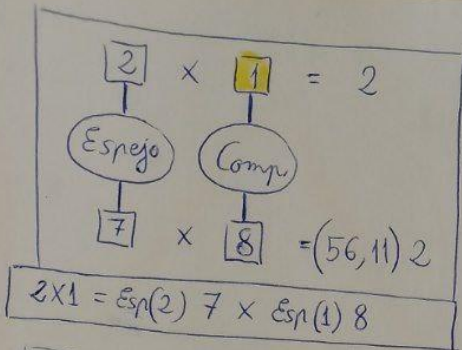 2 x 1 = 2
Espejo Comp
7 x 8 =(56,11) 2
2x1 = Esp(2) 7 x Esp(1) 8